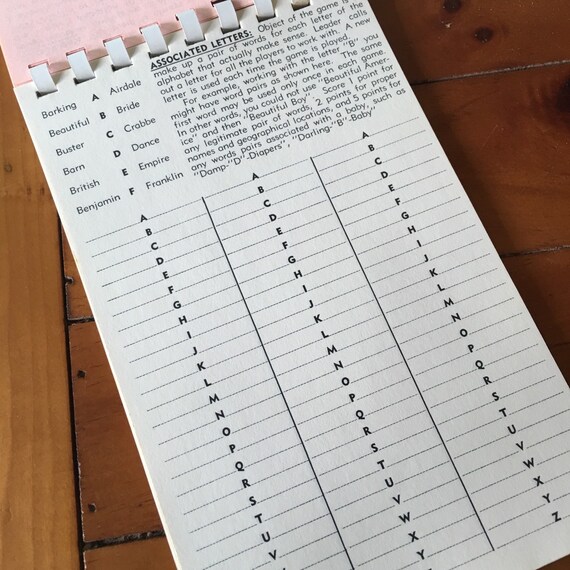 ASSOCIATED LETTERS: Object of the game is
make up a pair of words for each letter of the
alphabet that actually make sense. Leader calls
out a letter for all the players to work with. A new
letter is used each time the game is played.
For example, working with the letter "B", you
might have word pairs as shown here. The same
first word may be used only once in each game.
In other words, you could not use "Beautiful
ice" and then "Beautiful Boy". Score 1 point for
any legitimate pair of words, 2 points for proper
names and geographical locations, and 5 points for
any words pairs associated with a baby, such as
"Damp-"D"-Diapers", "Darling-"B"-Baby"
Barking A Airdale
Beautiful B Bride
Buster C Crabbe
Barn D Dance
British E Empire
Benjamin F Franklin
A
B
C
D
E
F
G
H
I
J
K
L
M
N
O
P
Q
R
S
T
U
V
A
B
C
D
E
F
G
H
I
J
K
L
M
N
O
P
Q
R
S
T
U
V
W
X
Y
A
B
C
D
E
F
G
H
I
J
K
L
M
N
O
P
Q
R
S
T
U
V
W
X
Y
Z